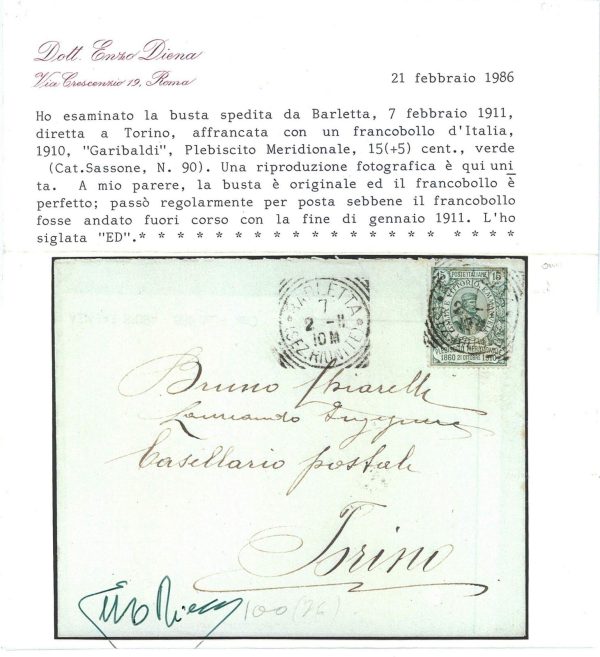 Dott. Enzo Diena
Via Crescenzio 19, Roma
21 febbraio 1986
Ho esaminato la busta spedita da Barletta, 7 febbraio 1911,
diretta a Torino, affrancata con un francobollo d'Italia,
1910, "Garibaldi", Plebiscito Meridionale, 15(+5) cent., verde
(Cat.Sassone, N. 90). Una riproduzione fotografica è qui uni
ta. A mio parere, la busta è originale ed il francobollo è
perfetto; passò regolarmente per posta sebbene il francobollo
fosse andato fuori corso con la fine di gennaio 1911. L'ho
siglata "ED".* * * * * * * * * * * * * * * * * * * *
15 POSTE ITALIANE 15
BARLETTA
7
2 - 11
10 M
1860 21 OTTOBRE 1910
Bruno Chiarelli
Laureando Ingegnere
Casellario postale
Torino
Enzo Diena
100 (76)